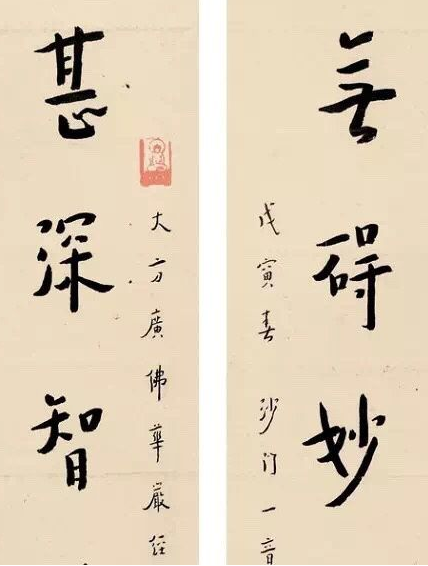 無碍妙
戊寅春 沙門一音
大方廣佛華嚴經
甚深智